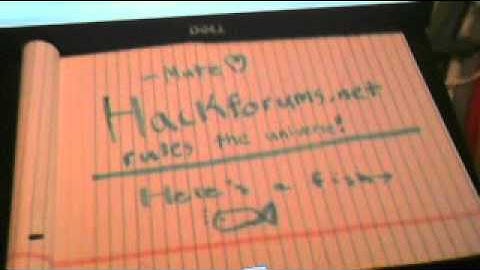 DELL
- Mute ♡
Hackforums.net
rules the universe!
Here's a fish →